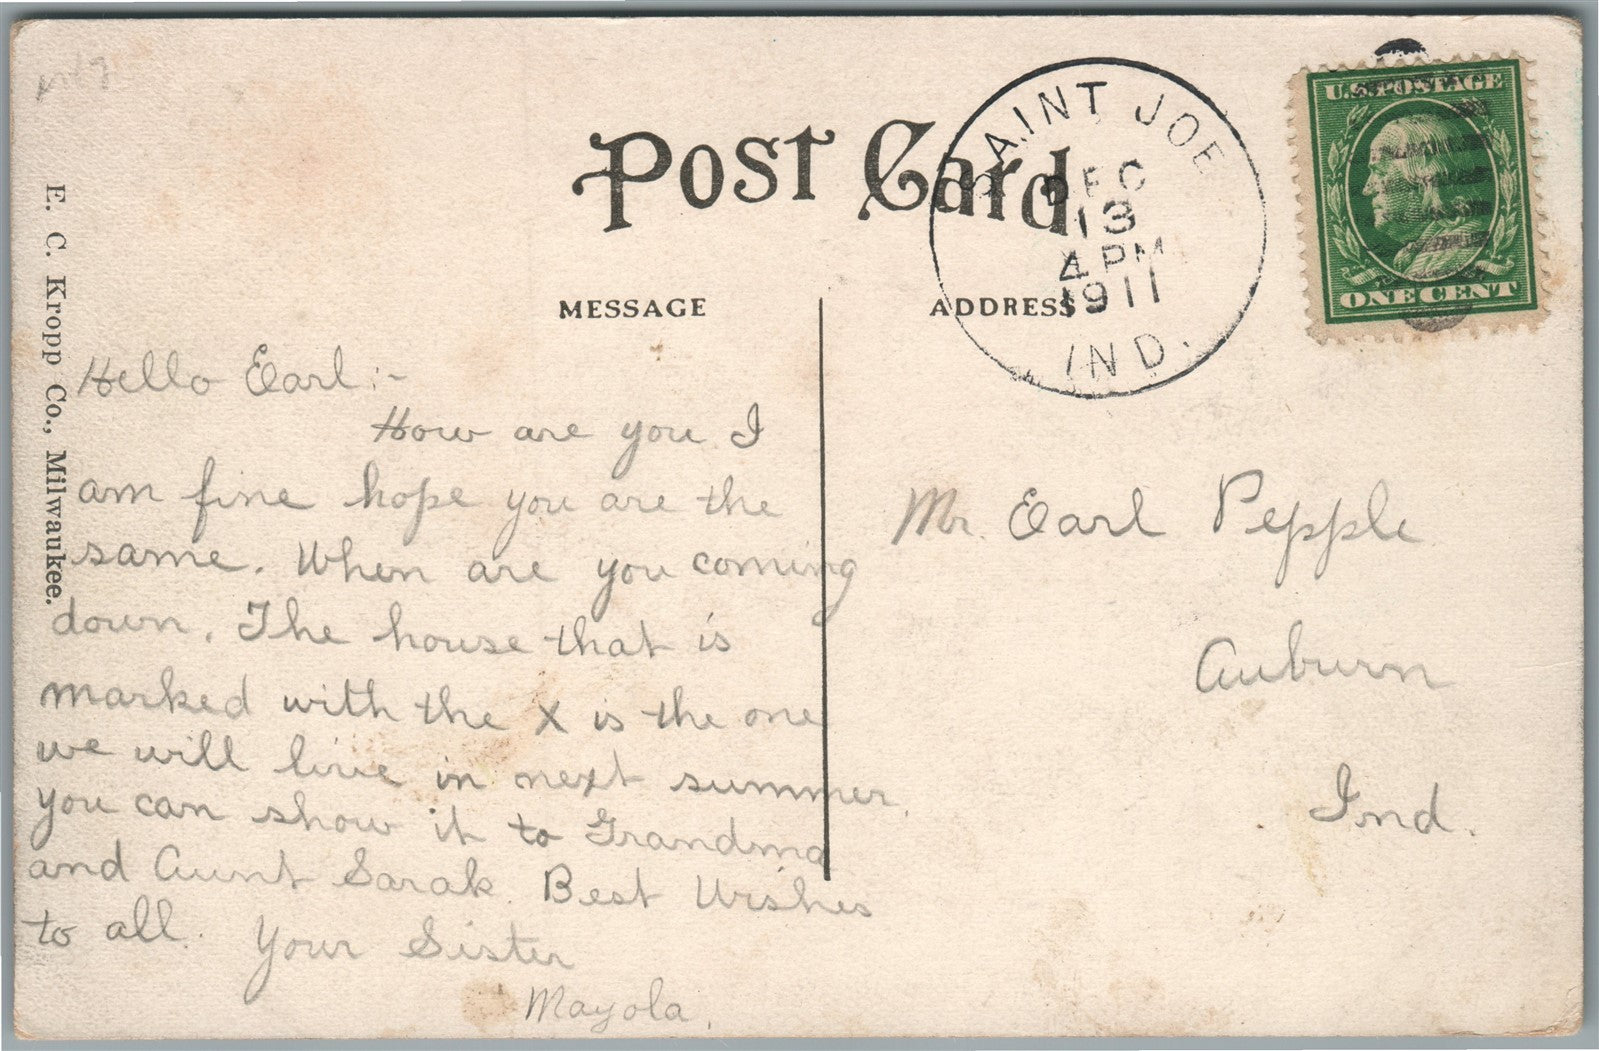 Post Card
SAINT JOE
DEC
13
4 PM
1911
IND.
U.S. POSTAGE
ONE CENT
MESSAGE
ADDRESS
E. C. Kropp Co., Milwaukee.
Hello Earl:-
How are you I
am fine hope you are the
same. When are you coming
down. The house that is
marked with the X is the one
we will live in next summer.
you can show it to Grandma
and Aunt Sarah. Best Wishes
to all. Your Sister
Mayola.
Mr. Earl Pepple
Auburn
Ind.